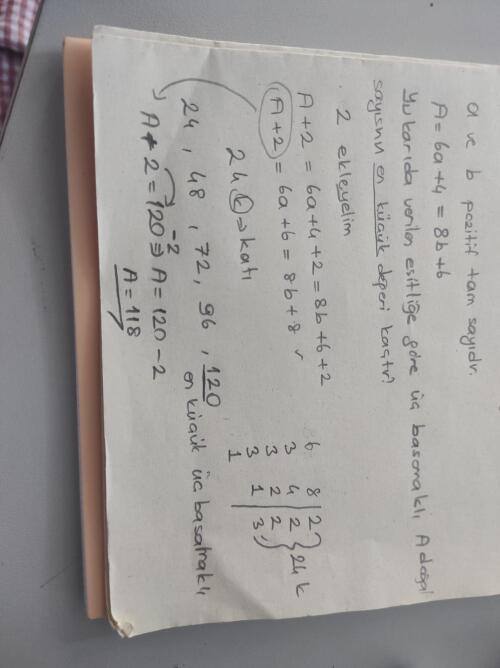 a ve b pozitif tam sayıdır.
A = 6a+4 = 8b+6
Yukarıda verilen eşitliğe göre üç basamaklı A doğal
sayısının en küçük değeri kaçtır?
2 ekleyelim
A+2 = 6a+4+2 = 8b+6+2
A+2 = 6a+6 = 8b+8
24 k ⇒ katı
6 8 | 2
3 4 | 2
3 2 | 2
3 1 | 3
1
24k
24, 48, 72, 96, 120
en küçük üç basamaklı
A+2 = 120 ⇒ A = 120-2
-2
A = 118